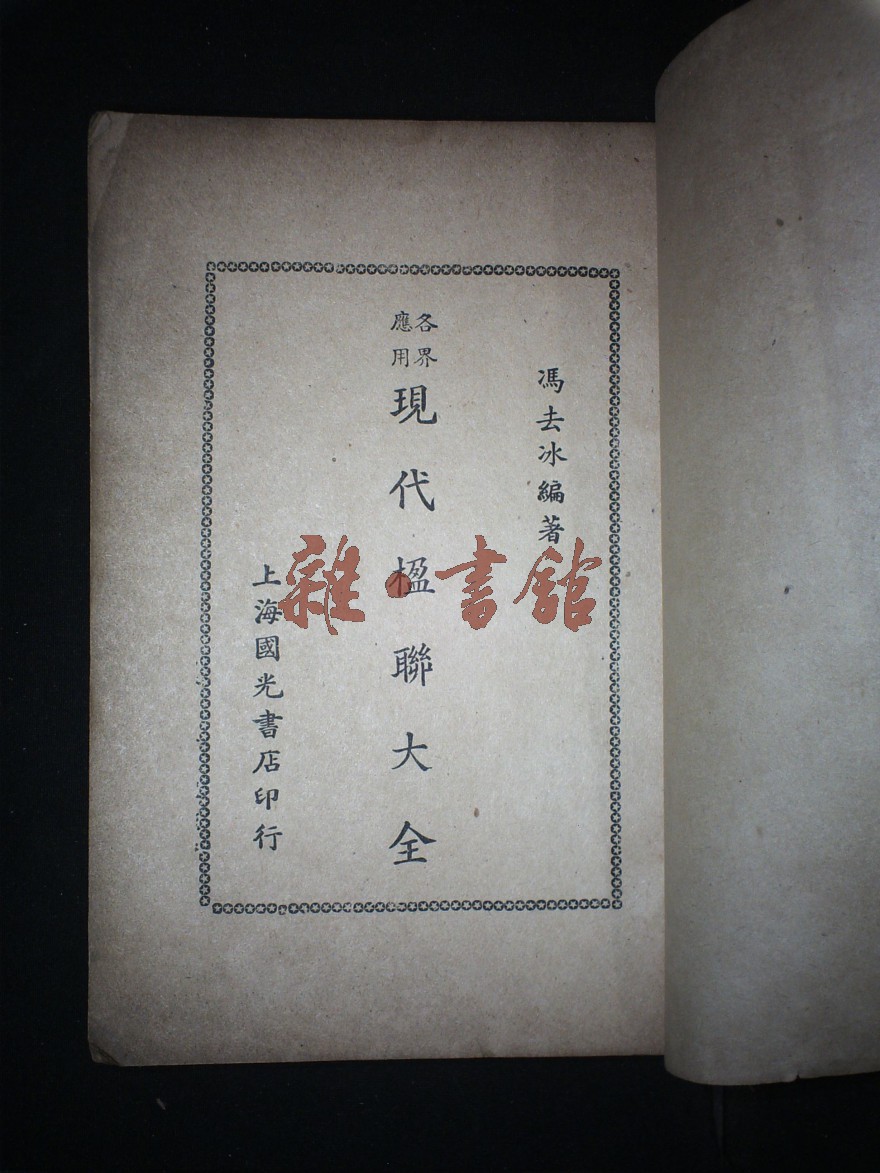 馮去冰編著
各界
應用
現代楹聯大全
上海國光書店印行
雜·書館